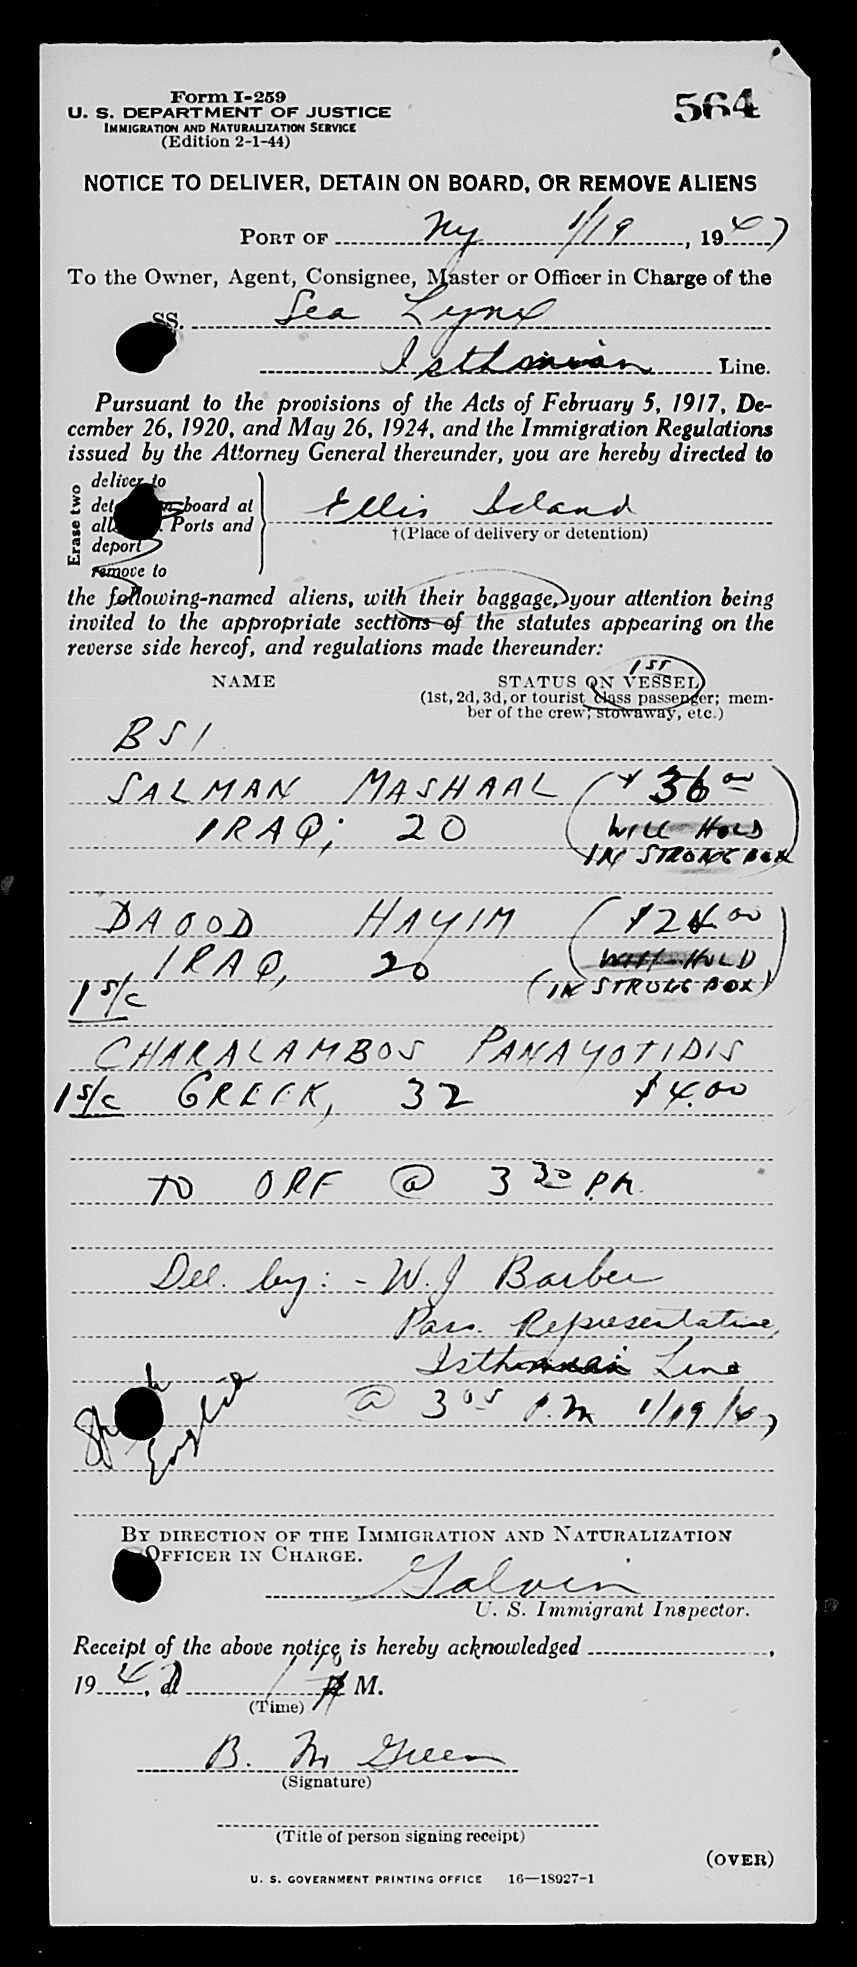 Form I-259
U. S. DEPARTMENT OF JUSTICE
IMMIGRATION AND NATURALIZATION SERVICE
(Edition 2-1-44)
564
NOTICE TO DELIVER, DETAIN ON BOARD, OR REMOVE ALIENS
PORT OF Ny 1/19, 1947
To the Owner, Agent, Consignee, Master or Officer in Charge of the
SS. Sea Lynx
Isthmian Line.
Pursuant to the provisions of the Acts of February 5, 1917, De-
cember 26, 1920, and May 26, 1924, and the Immigration Regulations
issued by the Attorney General thereunder, you are hereby directed to
Erase two
deliver to
board at
Ports and
deport
remove to
Ellis Island
†(Place of delivery or detention)
the following-named aliens, with their baggage, your attention being
invited to the appropriate sections of the statutes appearing on the
reverse side hereof, and regulations made thereunder:
1ST
NAME STATUS ON VESSEL
(1st, 2d, 3d, or tourist class passenger; mem-
ber of the crew, stowaway, etc.)
BSI
SALMAN MASHAAL ($36 00
IRAQ; 20 WILL HOLD
IN STRONG BOX)
DAOOD HAYIM ($24 00
IRAQ, 20 WILL HOLD
1 S/C (IN STRONG BOX)
CHARALAMBOS PANAYOTIDIS
1 S/C GREEK, 32 $4.00
TO ORF @ 3 30 P.M.
Del. by: - W. J Barber
Pass. Representative,
Isthmian Line
@ 3 05 P.M 1/19/47
English
BY DIRECTION OF THE IMMIGRATION AND NATURALIZATION
OFFICER IN CHARGE.
Galvin
U. S. Immigrant Inspector.
Receipt of the above notice is hereby acknowledged
1947, at M.
(Time)
B. M Green
(Signature)
(Title of person signing receipt)
(OVER)
U. S. GOVERNMENT PRINTING OFFICE 16—18927-1